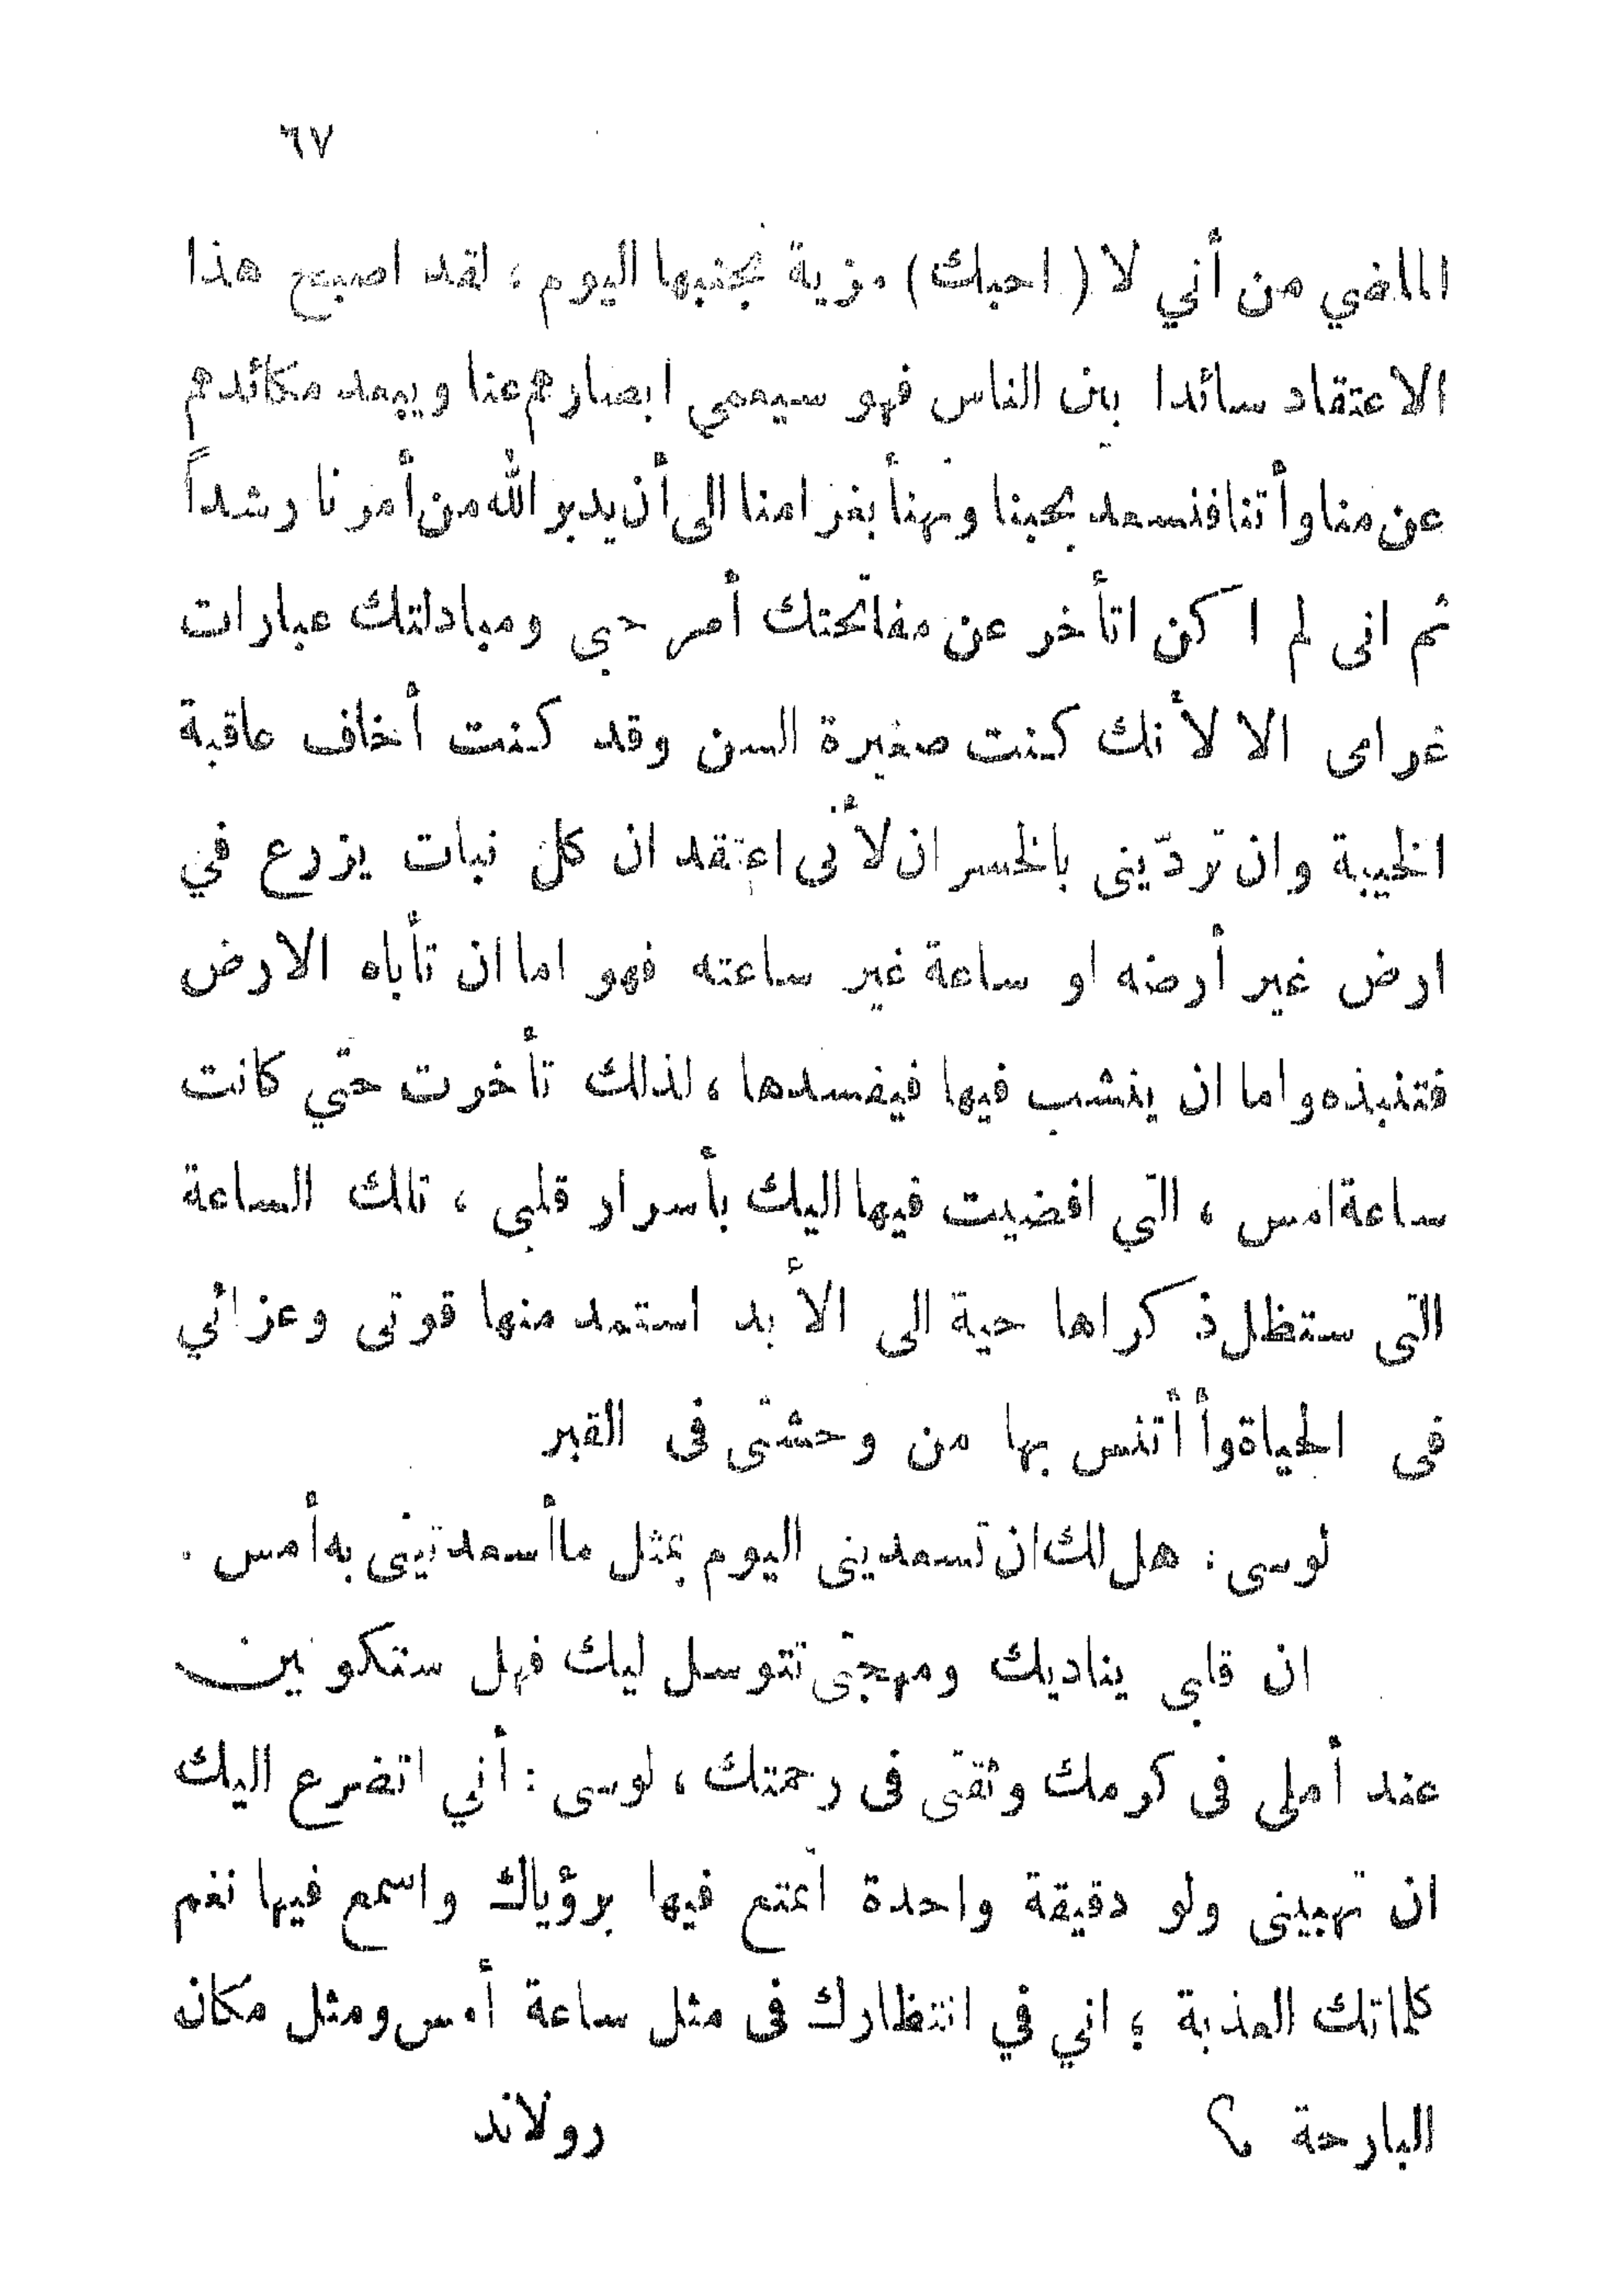 ٦٧
الماضي من أني لا ( احبك ) مزية نجتنبها اليوم ، لقد اصبح هذا
الاعتقاد سائدا بين الناس فهو سيعمي ابصارهم عنا ويبعد مكائدهم
عن مناوأتنا فنسعد بحبنا ونهنأ بغرامنا الى أن يدبر الله من أمرنا رشداً
ثم انى لم اكن اتأخر عن مفاتحتك أمر حبى ومبادلتك عبارات
غرامى الا لأنك كنت صغيرة السن وقد كنت أخاف عاقبة
الخيبة وان تردّينى بالخسران لأنى اعتقد ان كل نبات يزرع في
ارض غير أرضه او ساعة غير ساعته فهو اما ان تأباه الارض
فتنبذه واما ان ينشب فيها فيفسدها ، لذلك تأخرت حتي كانت
ساعة امس ، التي افضيت فيها اليك بأسرار قلبي ، تلك الساعة
التى ستظل ذكراها حية الى الأبد استمد منها قوتى وعزائي
فى الحياة وأأتنس بها من وحشتى فى القبر
لوسى : هل لك ان تسعدينى اليوم بمثل ما أسعدتينى به أمس .
ان قلبي يناديك ومهجتى تتوسل ليك فهل ستكونين
عند أملى فى كرمك وثقتى فى رحمتك ، لوسى : أني اتضرع اليك
ان تهبينى ولو دقيقة واحدة اتمتع فيها برؤياك واسمع فيها نغم
كلماتك العذبة ؛ اني في انتظارك فى مثل ساعة أمس ومثل مكان
البارحة ؟ رولاند